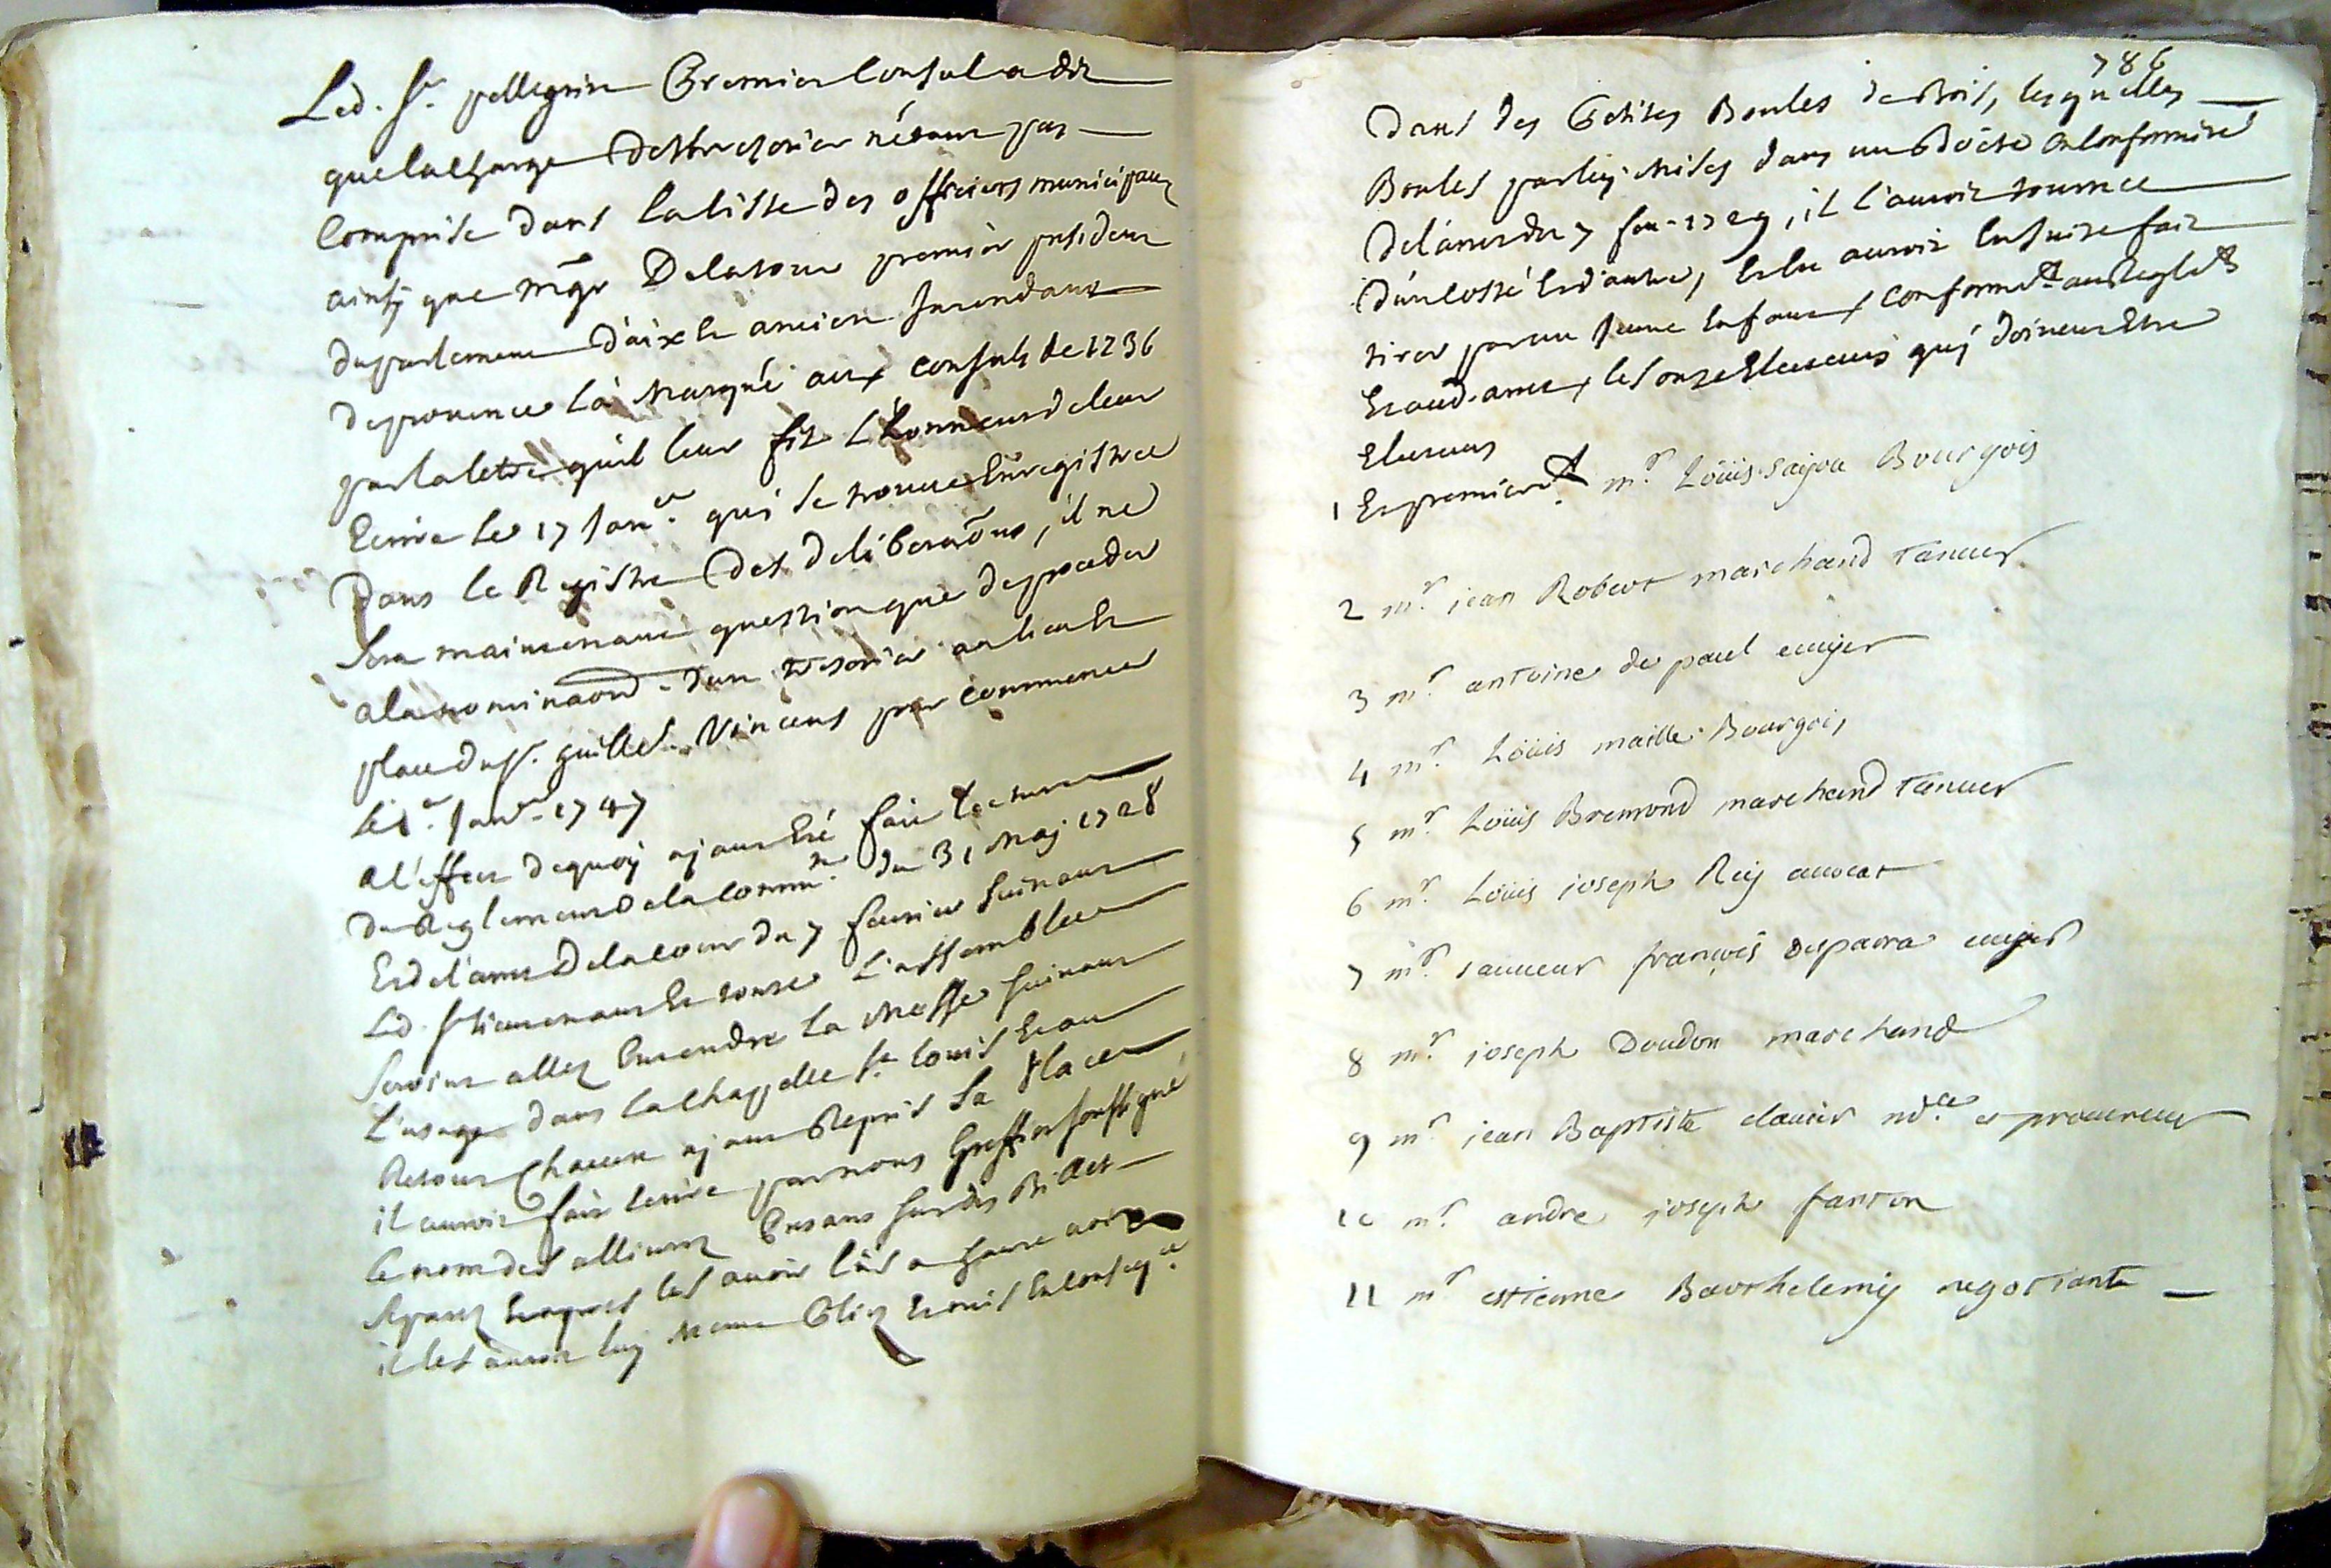 Led. Sr. pellegrin Premier Consul a dit
que la charge de thresorier n'étant pas
Comprise dans la liste des officiers municipaux
ainsy que mgr Delatour premier president
du parlement d'aix et ancien Intendant
de provence l'a marqué aux consuls de 1736
par la lettre qu'il leur fit L'honneur de leur
Ecrire le 17 Janer. qui se trouve Enregistrée
Dans le Registre des deliberaõns, il ne
sera maintenant question que de proceder
a la nominaõn d'un tresorier au lieu et
place du sr. guille Vincens pour commencer
le 1er. Janvr. 1747
A l'effet de quoy ayant Eté fait lecture
du Reglement de la commté. du 31 May 1728
Et de l'arret de la cour du 7 fevrier suivant
Led. sr lieutenant Et toute L'assemblée
seroint allez Entendre la Messe suivant
L'usage dans la chappelle st. louis Et au
Retour Chacun ayant Repris sa place
il auroit fait écrire par nous Greffier soussigné
le nom des allivrez Presans sur des Billets
separez Et apres les avoir lûs a haute voix
il les auroit luy meme Pliez Et mis En conseqce.
786
Dans des Petites Boules de Bois, lesquelles
Boules par luy mises dans une Boëte En Conformité
de l'arret du 7 fev. 1729, il l'auroit tournée
d'un costé Et d'autre, Et en auroit Ensuite fait
tirer par un Jeune Enfant, conformemt au Reglemt
Et aud. arret, les onze Electeurs quy doivent Etre
Electeurs
1 Et premieremt. mr. Loüis sajou Bourgois
2 mr. jean Robert marchand Tanneur
3 mr. antoine de paul ecuyer
4 mr. Loüis maille Bourgois
5 mr. Loüis Bremond marchand Tanneur
6 mr. Loüis joseph Rey avocat
7 mr. sauveur françois desparra ecuyer
8 mr. joseph Doudon marchand
9 mr. jean Baptiste clavier nore. et procureur
10 mr. andre joseph fanton
11 mr. estienne Barthelemy negotiant